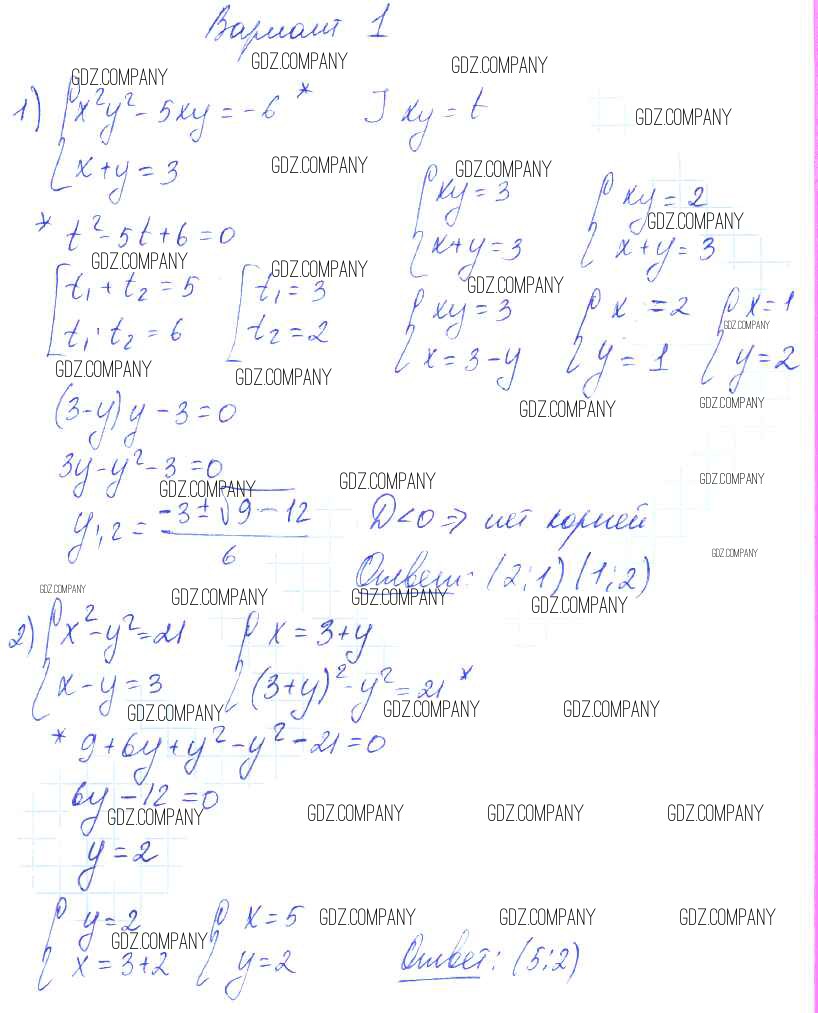 Вариант 1
GDZ.COMPANY GDZ.COMPANY GDZ.COMPANY
1) { x²y² - 5xy = -6 * ] xy = t
GDZ.COMPANY
{ x + y = 3 GDZ.COMPANY GDZ.COMPANY
{ xy = 3 { xy = 2
* t² - 5t + 6 = 0 { x + y = 3 { x + y = 3 GDZ.COMPANY
GDZ.COMPANY GDZ.COMPANY GDZ.COMPANY
[ t₁ + t₂ = 5 [ t₁ = 3 { xy = 3 { x = 2 { x = 1
GDZ.COMPANY
[ t₁ · t₂ = 6 [ t₂ = 2 { x = 3 - y { y = 1 { y = 2
GDZ.COMPANY GDZ.COMPANY
(3 - y) y - 3 = 0 GDZ.COMPANY GDZ.COMPANY
3y - y² - 3 = 0
GDZ.COMPANY GDZ.COMPANY GDZ.COMPANY
y₁,₂ = (-3 ± √9 - 12) / 6 D < 0 ⇒ нет корней
GDZ.COMPANY
Ответ: (2; 1) (1; 2)
GDZ.COMPANY GDZ.COMPANY GDZ.COMPANY GDZ.COMPANY
2) { x² - y² = 21 { x = 3 + y
{ x - y = 3 { (3 + y)² - y² = 21 *
GDZ.COMPANY GDZ.COMPANY GDZ.COMPANY
* 9 + 6y + y² - y² - 21 = 0
6y - 12 = 0
GDZ.COMPANY GDZ.COMPANY GDZ.COMPANY GDZ.COMPANY
y = 2
{ y = 2 { x = 5 GDZ.COMPANY GDZ.COMPANY GDZ.COMPANY
GDZ.COMPANY
{ x = 3 + 2 { y = 2 Ответ: (5; 2)